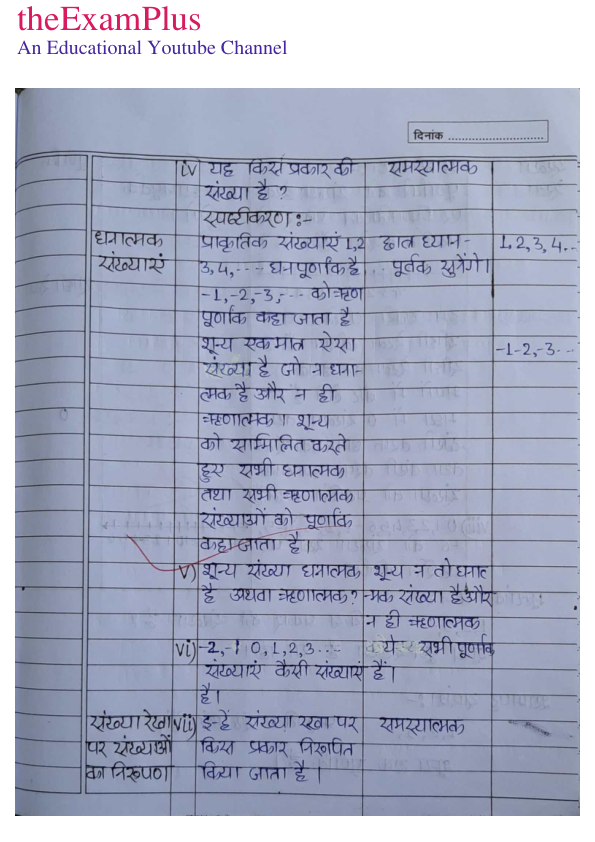 theExamPlus
An Educational Youtube Channel
दिनांक ............................
iv) यह किस प्रकार की
संख्या है ?
समस्यात्मक
स्पष्टीकरण :-
धनात्मक
संख्याएं
प्राकृतिक संख्याएं 1,2
3,4, --- धन पूर्णांक है
-1,-2,-3,--- को ऋण
पूर्णांक कहा जाता है
शून्य एकमात्र ऐसा
संख्या है जो न धना-
त्मक है और न ही
ऋणात्मक। शून्य
को सम्मिलित करते
हुए सभी धनात्मक
तथा सभी ऋणात्मक
संख्याओं को पूर्णांक
कहा जाता है।
छात्र ध्यान-
पूर्वक सुनेंगे।
1,2,3,4..
-1-2,-3...
v) शून्य संख्या धनात्मक
है अथवा ऋणात्मक?
शून्य न तो धनात
-मक संख्या है और
न ही ऋणात्मक
vi) -2,-1 0,1,2,3...
संख्याएं कैसी संख्याएं
है।
ये सभी पूर्णांक
हैं।
संख्या रेखा
पर संख्याओं
का निरूपण
vii) इन्हें संख्या रखा पर
किस प्रकार निरूपित
किया जाता है।
समस्यात्मक